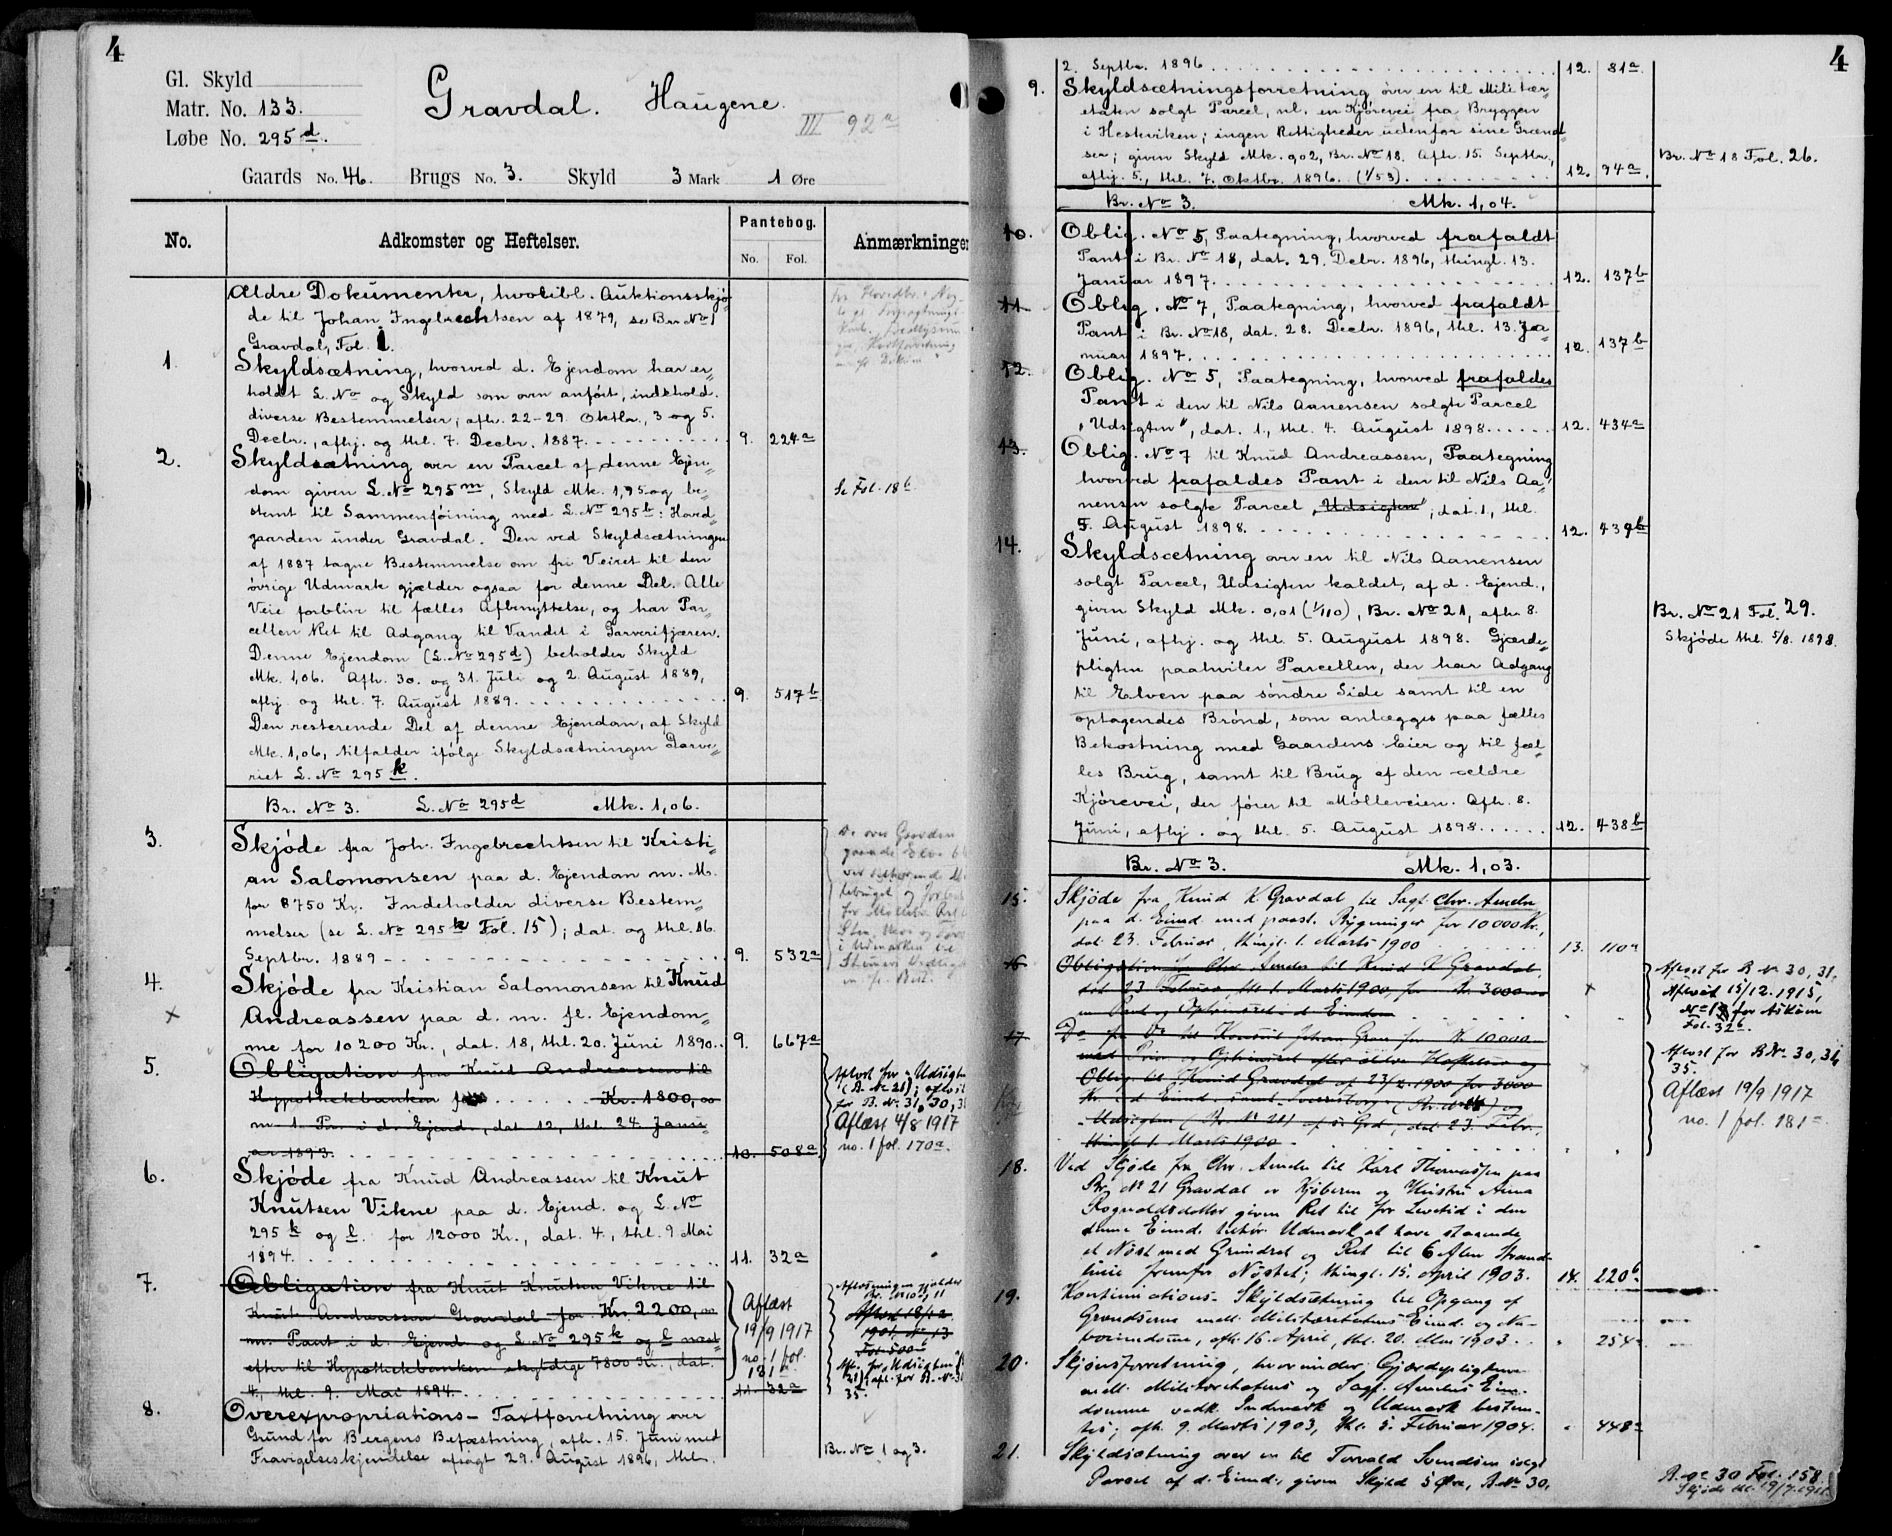 4
Gl. Skyld
Matr. No. 133.
Løbe No. 295 d.
Gravdal. Haugene.
III 92 a
Gaards No. 46. Brugs No. 3. Skyld 3 Mark 1 Øre
No. Adkomster og Heftelser. Pantebog. Anmærkninger
No. Fol.
Ældre Dokumenter, hvoribl. Auktionsskjø-
de til Johan Ingebrechtsen af 1879, se Br. No 1
Gravdal, Fol. 1.
1. Skyldsætning, hvorved d. Ejendom har er-
holdt L. No og Skyld som oven anført, indehold.
diverse Bestemmelser; afh. 22-29 Oktbr., 3 og 5.
Decbr., afhj. og thl. 7. Decbr. 1887. 9. 224a
2. Skyldsætning over en Parcel af denne Ejen-
dom given L. No 295 m, Skyld Mk. 1,95 og be- Se Fol. 18 b
stemt til Sammenføining med L. No 295 b: Hoved-
gaarden under Gravdal. Den ved Skyldsætningen
af 1887 tagne Bestemmelse om fri Veiret til den
øvrige Udmark gjælder ogsaa for denne Del. Alle
Veie forblive til fælles Afbenyttelse, og har Par-
cellen Ret til Adgang til Vandet i Garverifjæren.
Denne Ejendom (L. No 295 d) beholder Skyld
Mk. 1,06. Afh. 30. og 31. Juli og 2. August 1889,
afhj og thl. 7. August 1889. 9. 517 b
Den resterende Del af denne Ejendom, af Skyld
Mk. 1,06, tilfalder ifølge Skyldsætningen Garve-
riet L. No 295 k.
Br. No 3. L. No 295 d Mk. 1,06.
3. Skjøde fra Joh. Ingebrechtsen til Kristi-
an Salomonsen paa d. Ejendom m. M.
for 8750 Kr. Indeholder diverse Bestem-
melser (se L. No 295 k Fol. 15); dat. og thl. 16.
Septbr. 1889 9. 532a
4. Skjøde fra Kristian Salomonsen til Knud
Andreassen paa d. m. fl. Ejendom-
me for 10200 Kr., dat. 18, thl. 20. Juni 1890. 9. 667a
5. Obligation fra Knut Andreassen til
Hypothekbanken for Kr. 1800,00
m 1. Pr. i d. Ejend., dat 12, thl. 24. Janu-
ar 1893. 10. 508a
Afløst for Udsigt
(B. No 21);
for B. No 31, 30,
Aflæst 4/8 1917
no. 1 fol. 170a.
6. Skjøde fra Knud Andreassen til Knut
Knutsen Vikne paa d. Ejend. og L. No
295 k og l for 12000 Kr., dat. 4., thl. 9 Mai
1894. 11. 32a
7. Obligation fra Knut Knutsen Vikne til
Knut Andreassen Gravdal for Kr. 2200,00
m. Pant i d. Ejend og L. No 295 k og l næst
efter til Hypothekbanken skyldige 7800 Kr., dat.
4, thl. 9. Mai 1894. 11. 32a
Aflæst
19/9 1917
no. 1 fol.
181a.
8. Overexpropriations-Taxtforretning over
Grund for Bergens Befæstning, afh. 15. Juni med
Fravigelseskjendelse afsagt 29. August 1896, thl. Br. No 1 og 3.
4
2. Septbr. 1896 12. 81a.
9. Skyldsætningsforretning over en til Militær-
etaten solgt Parcel, nl. en Kjørevei fra Bryggen
i Hesteviken; ingen Rettigheder udenfor sine Grænd-
ser; given Skyld Mk. 0,02, Br. No 18. Afh. 15. Septbr., Br. No 18 Fol. 26.
afhj. 5., thl. 7. Oktbr. 1896. (1/53) 12. 94a.
Br. No 3. Mk. 1,04.
10. Oblig. No 5, Paategning, hvorved frafaldt
Pant i Br. No 18, dat. 29. Debr. 1896, thingl. 13.
Januar 1897. 12. 137b
11. Oblig. No 7, Paategning, hvorved frafaldt
Pant i Br. No 18, dat. 28. Decbr. 1896, thl. 13. Ja-
nuar 1897. 12. 137b
12. Oblig. No 5, Paategning, hvorved frafaldes
Pant i den til Nils Aanensen solgte Parcel
"Udsigten", dat. 1., thl. 4. August 1898. 12. 434a
13. Oblig. No 7 til Knud Andreassen, Paategning
hvorved frafaldes Pant i den til Nils Aa-
nensen solgte Parcel "Udsigten", dat. 1., thl.
5. August 1898. 12. 439b
14. Skyldsætning over en til Nils Aanensen
solgt Parcel, Udsigten kaldet, af d. Ejend.,
given Skyld Mk. 0,01 (1/110), Br. No 21, afh. 8. Br. No 21 Fol. 29.
Juni, afhj. og thl. 5. August 1898. Gjærde- Skjøde thl. 5/8. 1898.
pligten paahviler Parcellen, der har Adgang
til Elven paa søndre Side samt til en
optagendes Brønd, som anlægges paa fælles
Bekostning med Gaardens Eier og til fæl-
les Brug, samt til Brug af den ældre
Kjørevei, der fører til Mølleveien. Afh. 8.
Juni, afhj. og thl. 5. August 1898. 12. 438b
Br. No 3. Mk. 1,03.
15. Skjøde fra Knud K Gravdal til Sagf. Chr. Ameln
paa d. Eiend med paast. Bygninger for 10000 Kr.,
dat. 23. Februar, thingl. 1. Marts 1900 13. 110a
16. Obligation fra Chr. Ameln til Knud K Gravdal,
dat 23 Februar, thl. 1. Marts 1900, for Kr. 3000
m Pant og Opbudsret i d Eiendom
Afløst for B No 30, 31,
Aflæst 15/12. 1915,
17. Do fra Do til Konsul Johan Gran for Kr 10000
med Prior. og Opbudsret efter ældre Heftelser og
Oblig. til Knud Gravdal af 23/2. 1900 for 3000
Kr. i d Eiend.
Udsigten (Br. No 21) dat. 23. Febr.,
thingl 1 Marts 1900
Afløst for B No. 30, 31,
35.
Aflæst 19/9 1917
no. 1 fol. 181a
18. Ved Skjøde fra Chr. Ameln til Karl Thomassen paa
Br. No 21 Gravdal er Kjøberen og Hustru Anna
Rognaldsdatter given Ret til for Levetid i den
denne Eiend. tilhør. Udmark at have staaende
et Nøst med Grundret og Ret til 6 Alen Strand-
linie fremfor Nøstet; thingl. 15. April 1903. 14. 220b
19. Kontinuations-Skyldsætning til Opgang af
Grændserne mell. Militæretatens Eiend. og Na-
boeiendomme, afh. 16. April, thl. 20. Mai 1903. " 254a
20. Skjønsforretning, hvorunder Gjærdepligten
mell. Militæretatens og Sagf. Amelns Eien-
domme vedk. Indmark og Udmark bestem-
tes; afh. 9. Marts 1903, thl. 5. Februar 1904. " 448a
21. Skyldsætning over en til Torvald Svendsen solgt
Parcel af d. Eiend., given Skyld 5 Øre, B. No 30, B. No 30 Fol. 158